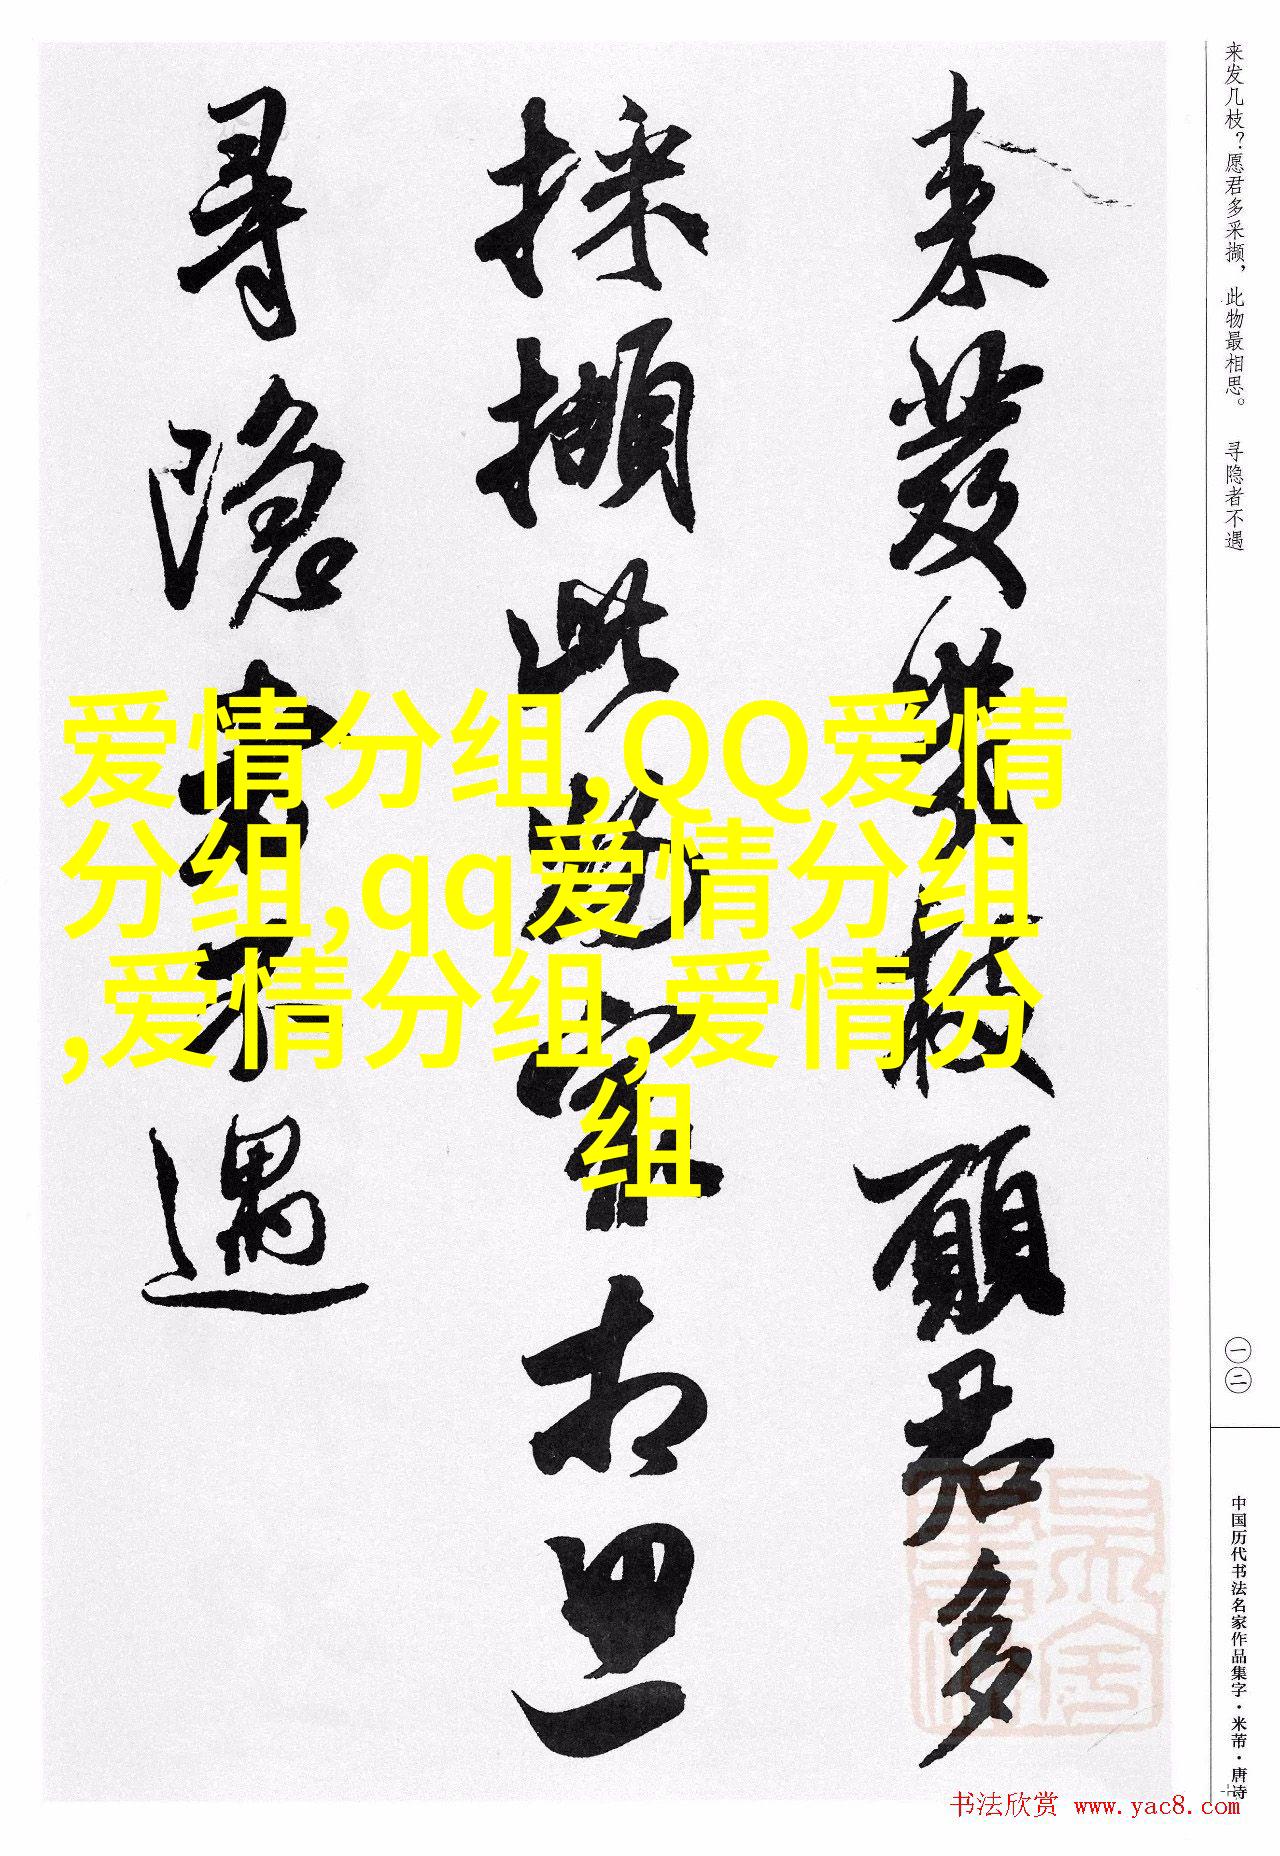 来发几枝？愿君多采撷，此物最相思。 寻隐者不遇
一二
中国历代书法名家作品集字·米芾·唐诗
来發幾枝願君多
採擷此物最相思
尋隱者不遇
爱情分组,QQ爱情
分组,qq爱情分组
,爱情分组,爱情分
组
书法欣赏 www.yac8.com